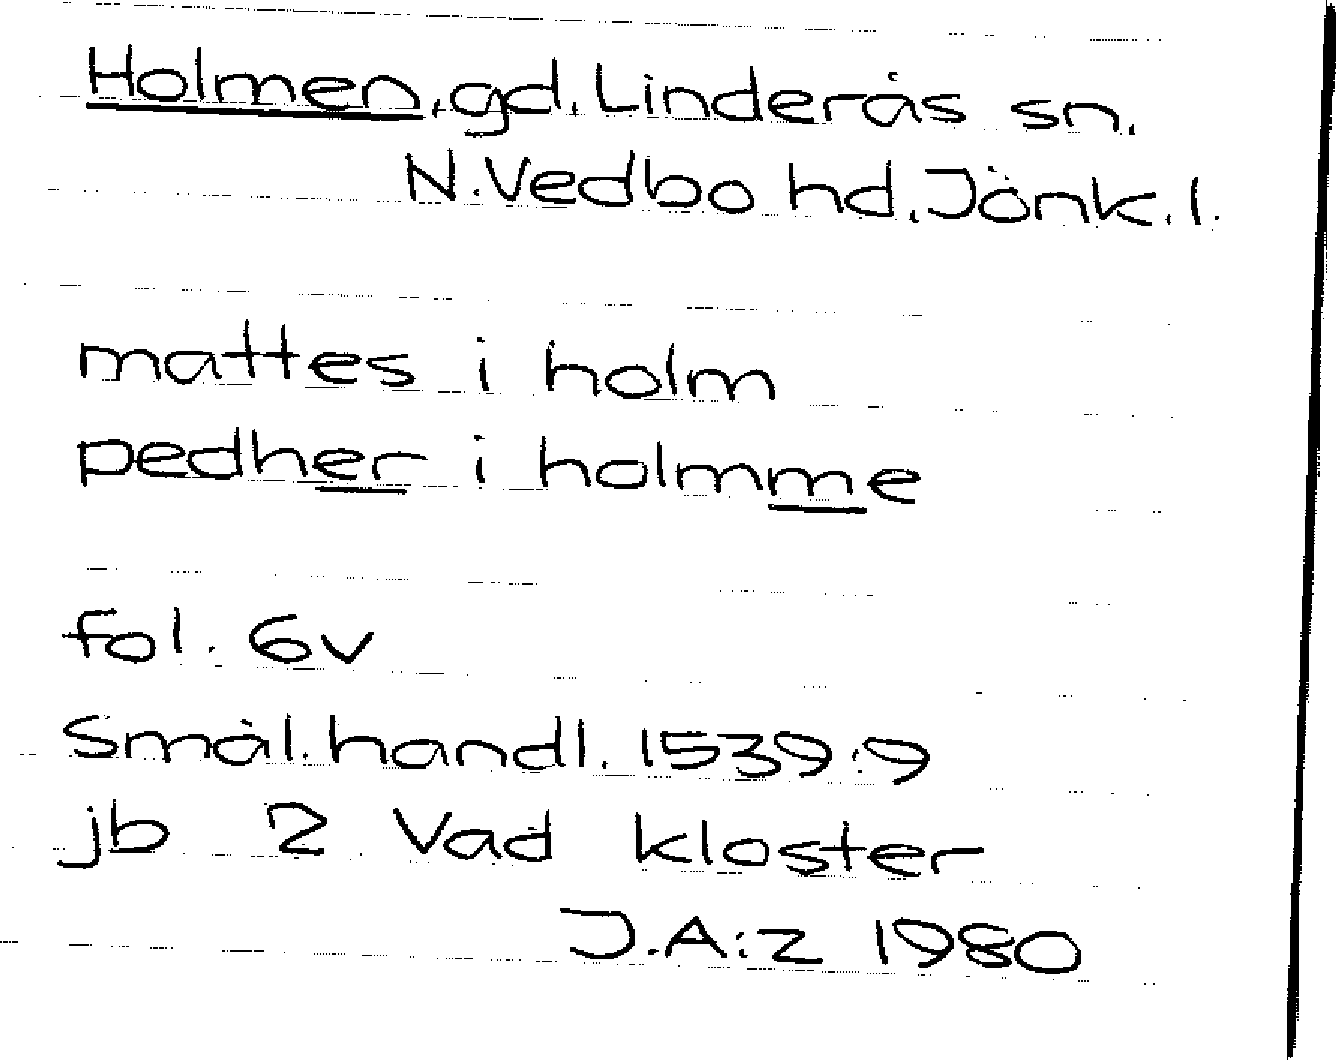 Holmen, gd, Linderås sn.
N. Vedbo hd, Jönk. l.
mattes i holm
pedher i holmme
fol. 6v
Smål. handl. 1539:9
jb 2 Vad kloster
J.A:z 1980